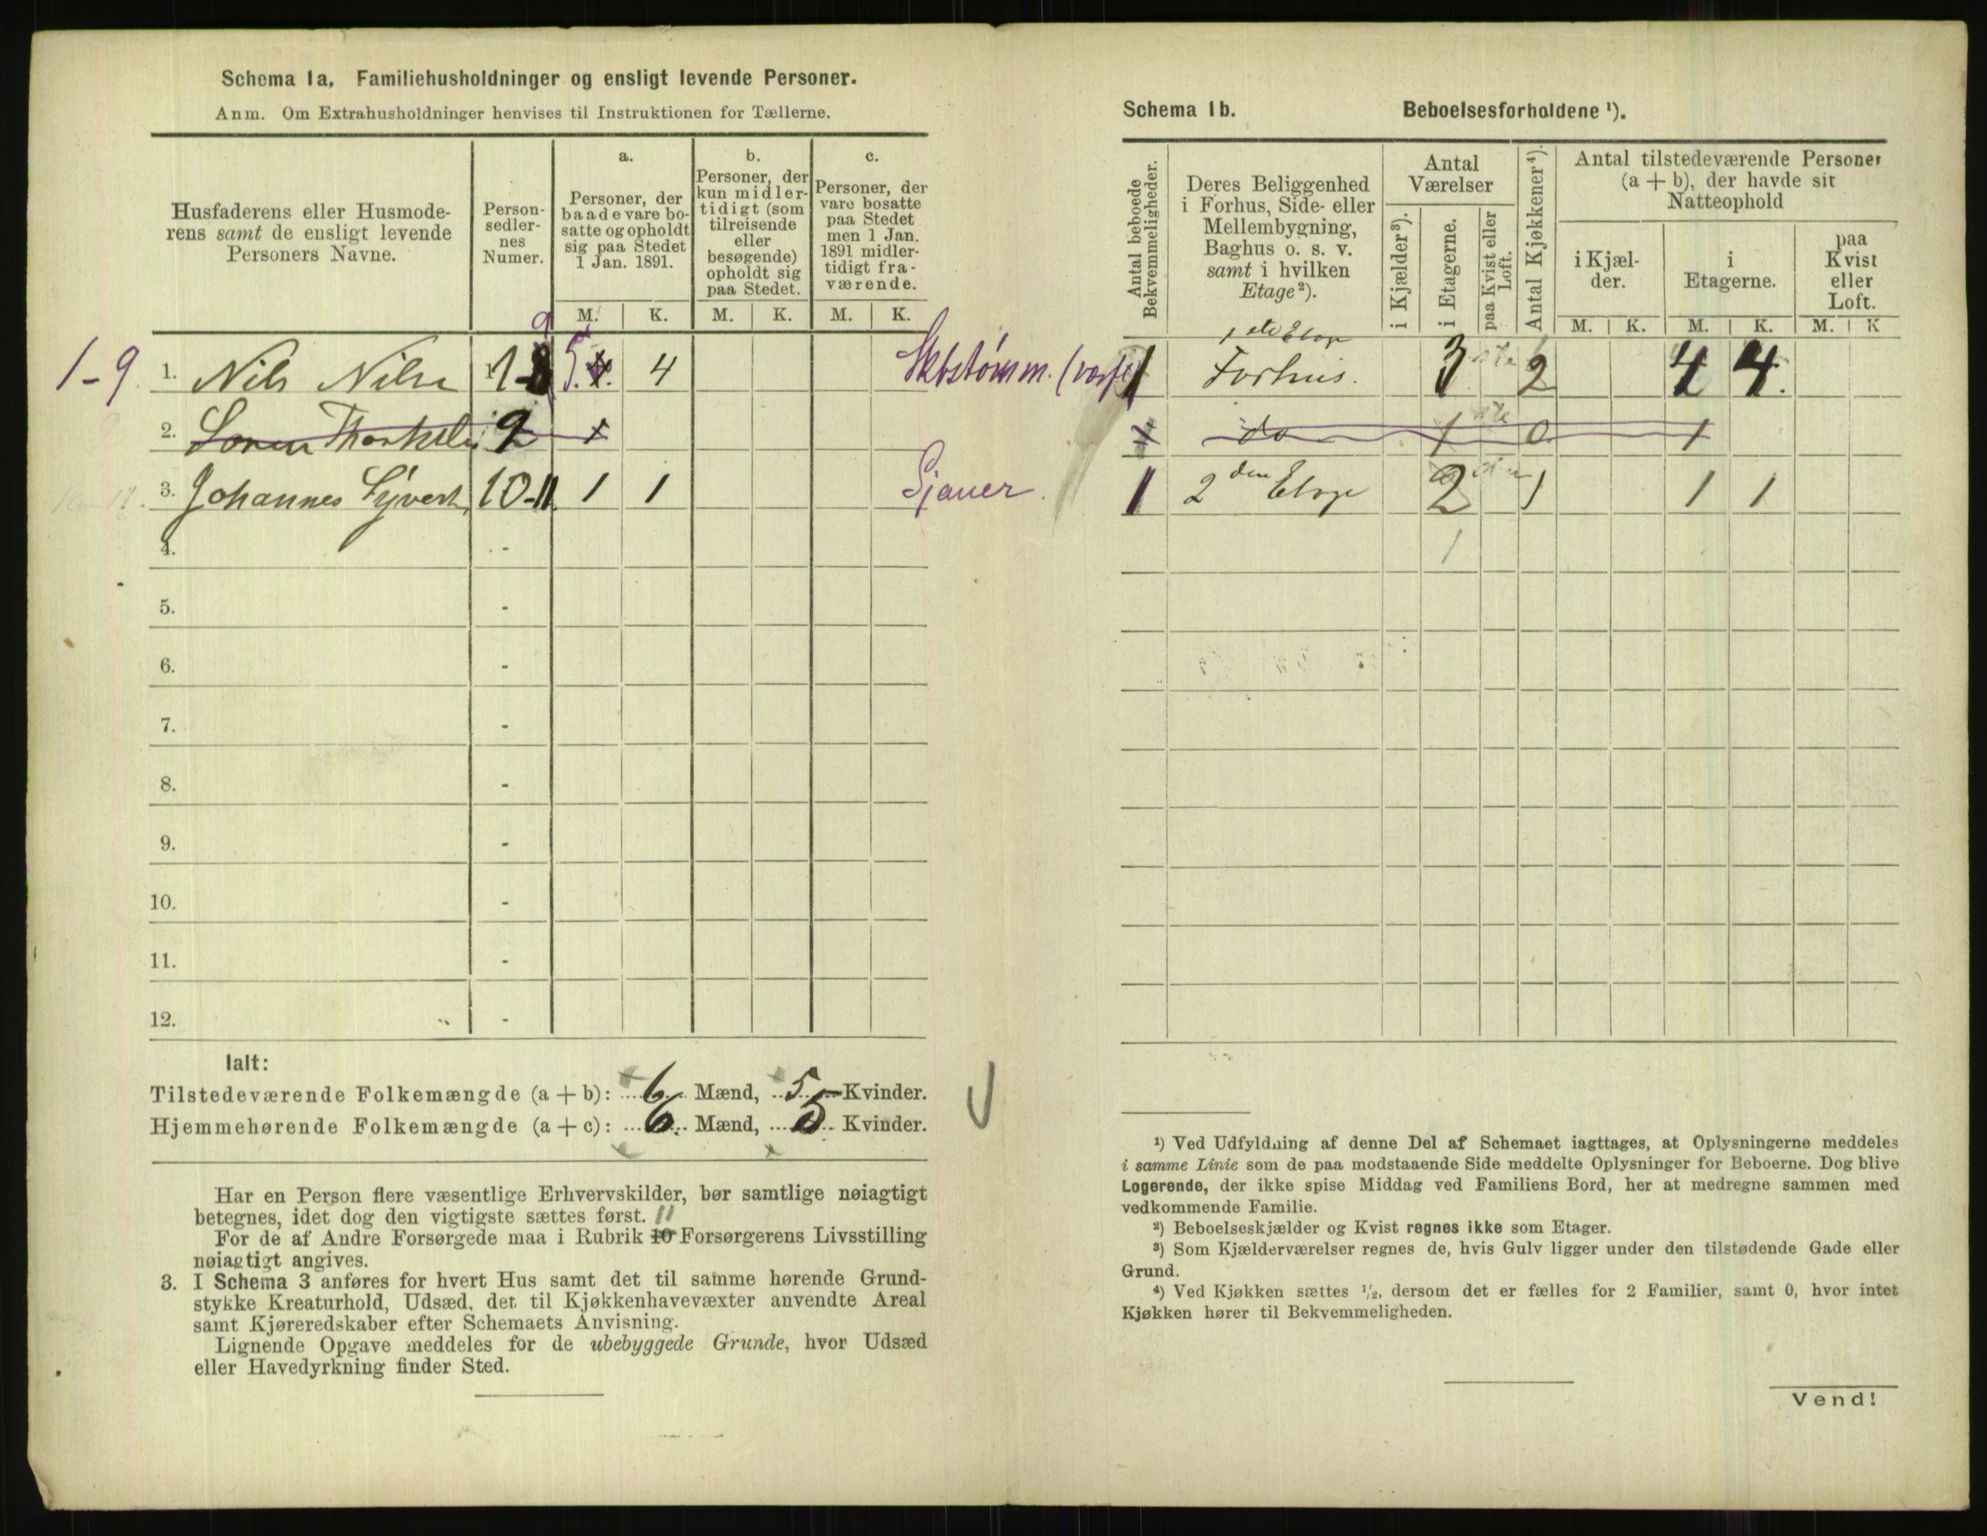 Schema 1a. Familiehusholdninger og ensligt levende Personer.
Anm. Om Extrahusholdninger henvises til Instruktionen for Tællerne.
Husfaderens eller Husmoderens samt de ensligt levende Personers Navne.
Personsedlernes Numer.
a.
Personer, der baade vare bosatte og opholdt sig paa Stedet 1 Jan. 1891.
b.
Personer, der kun midlertidigt (som tilreisende eller besøgende) opholdt sig paa Stedet.
c.
Personer, der vare bosatte paa Stedet men 1 Jan. 1891 midlertidigt fraværende.
M. K. M. K. M. K.
1-9 1. Nils Nilse 1-8 9 5 4 Skbstømm.
2. Soren Thorkels 9 1
3. Johannes Syvert 10-11 1 1 Sjauer.
4. -
5. -
6. -
7. -
8. -
9. -
10. -
11. -
12. -
Ialt:
Tilstedeværende Folkemængde (a + b): 6 Mænd, 5 Kvinder.
Hjemmehørende Folkemængde (a + c): 6 Mænd, 5 Kvinder.
Har en Person flere væsentlige Erhvervskilder, bør samtlige nøiagtigt
betegnes, idet dog den vigtigste sættes først. 11
For de af Andre Forsørgede maa i Rubrik 10 Forsørgerens Livsstilling
nøiagtigt angives.
3. I Schema 3 anføres for hvert Hus samt det til samme hørende Grund-
stykke Kreaturhold, Udsæd, det til Kjøkkenhavevæxter anvendte Areal
samt Kjøreredskaber efter Schemaets Anvisning.
Lignende Opgave meddeles for de ubebyggede Grunde, hvor Udsæd
eller Havedyrkning finder Sted.
Schema 1b. Beboelsesforholdene ¹).
Antal beboede Bekvemmeligheder.
Deres Beliggenhed i Forhus, Side- eller Mellembygning, Baghus o. s. v. samt i hvilken Etage²).
Antal Værelser
i Kjælder³).
i Etagerne.
paa Kvist eller Loft.
Antal Kjøkkener⁴).
Antal tilstedeværende Personer (a + b), der havde sit Natteophold
i Kjælder.
i Etagerne.
paa Kvist eller Loft.
M. K. M. K. M. K
1ste Etage
1 Forhus. 3 2 4 4
1 do 1 0 1
1 2den Etage 2 1 1 1
1
¹) Ved Udfyldning af denne Del af Schemaet iagttages, at Oplysningerne meddeles
i samme Linie som de paa modstaaende Side meddelte Oplysninger for Beboerne. Dog blive
Logerende, der ikke spise Middag ved Familiens Bord, her at medregne sammen med
vedkommende Familie.
²) Beboelseskjælder og Kvist regnes ikke som Etager.
³) Som Kjælderværelser regnes de, hvis Gulv ligger under den tilstødende Gade eller
Grund.
⁴) Ved Kjøkken sættes ½, dersom det er fælles for 2 Familier, samt 0, hvor intet
Kjøkken hører til Bekvemmeligheden.
Vend!